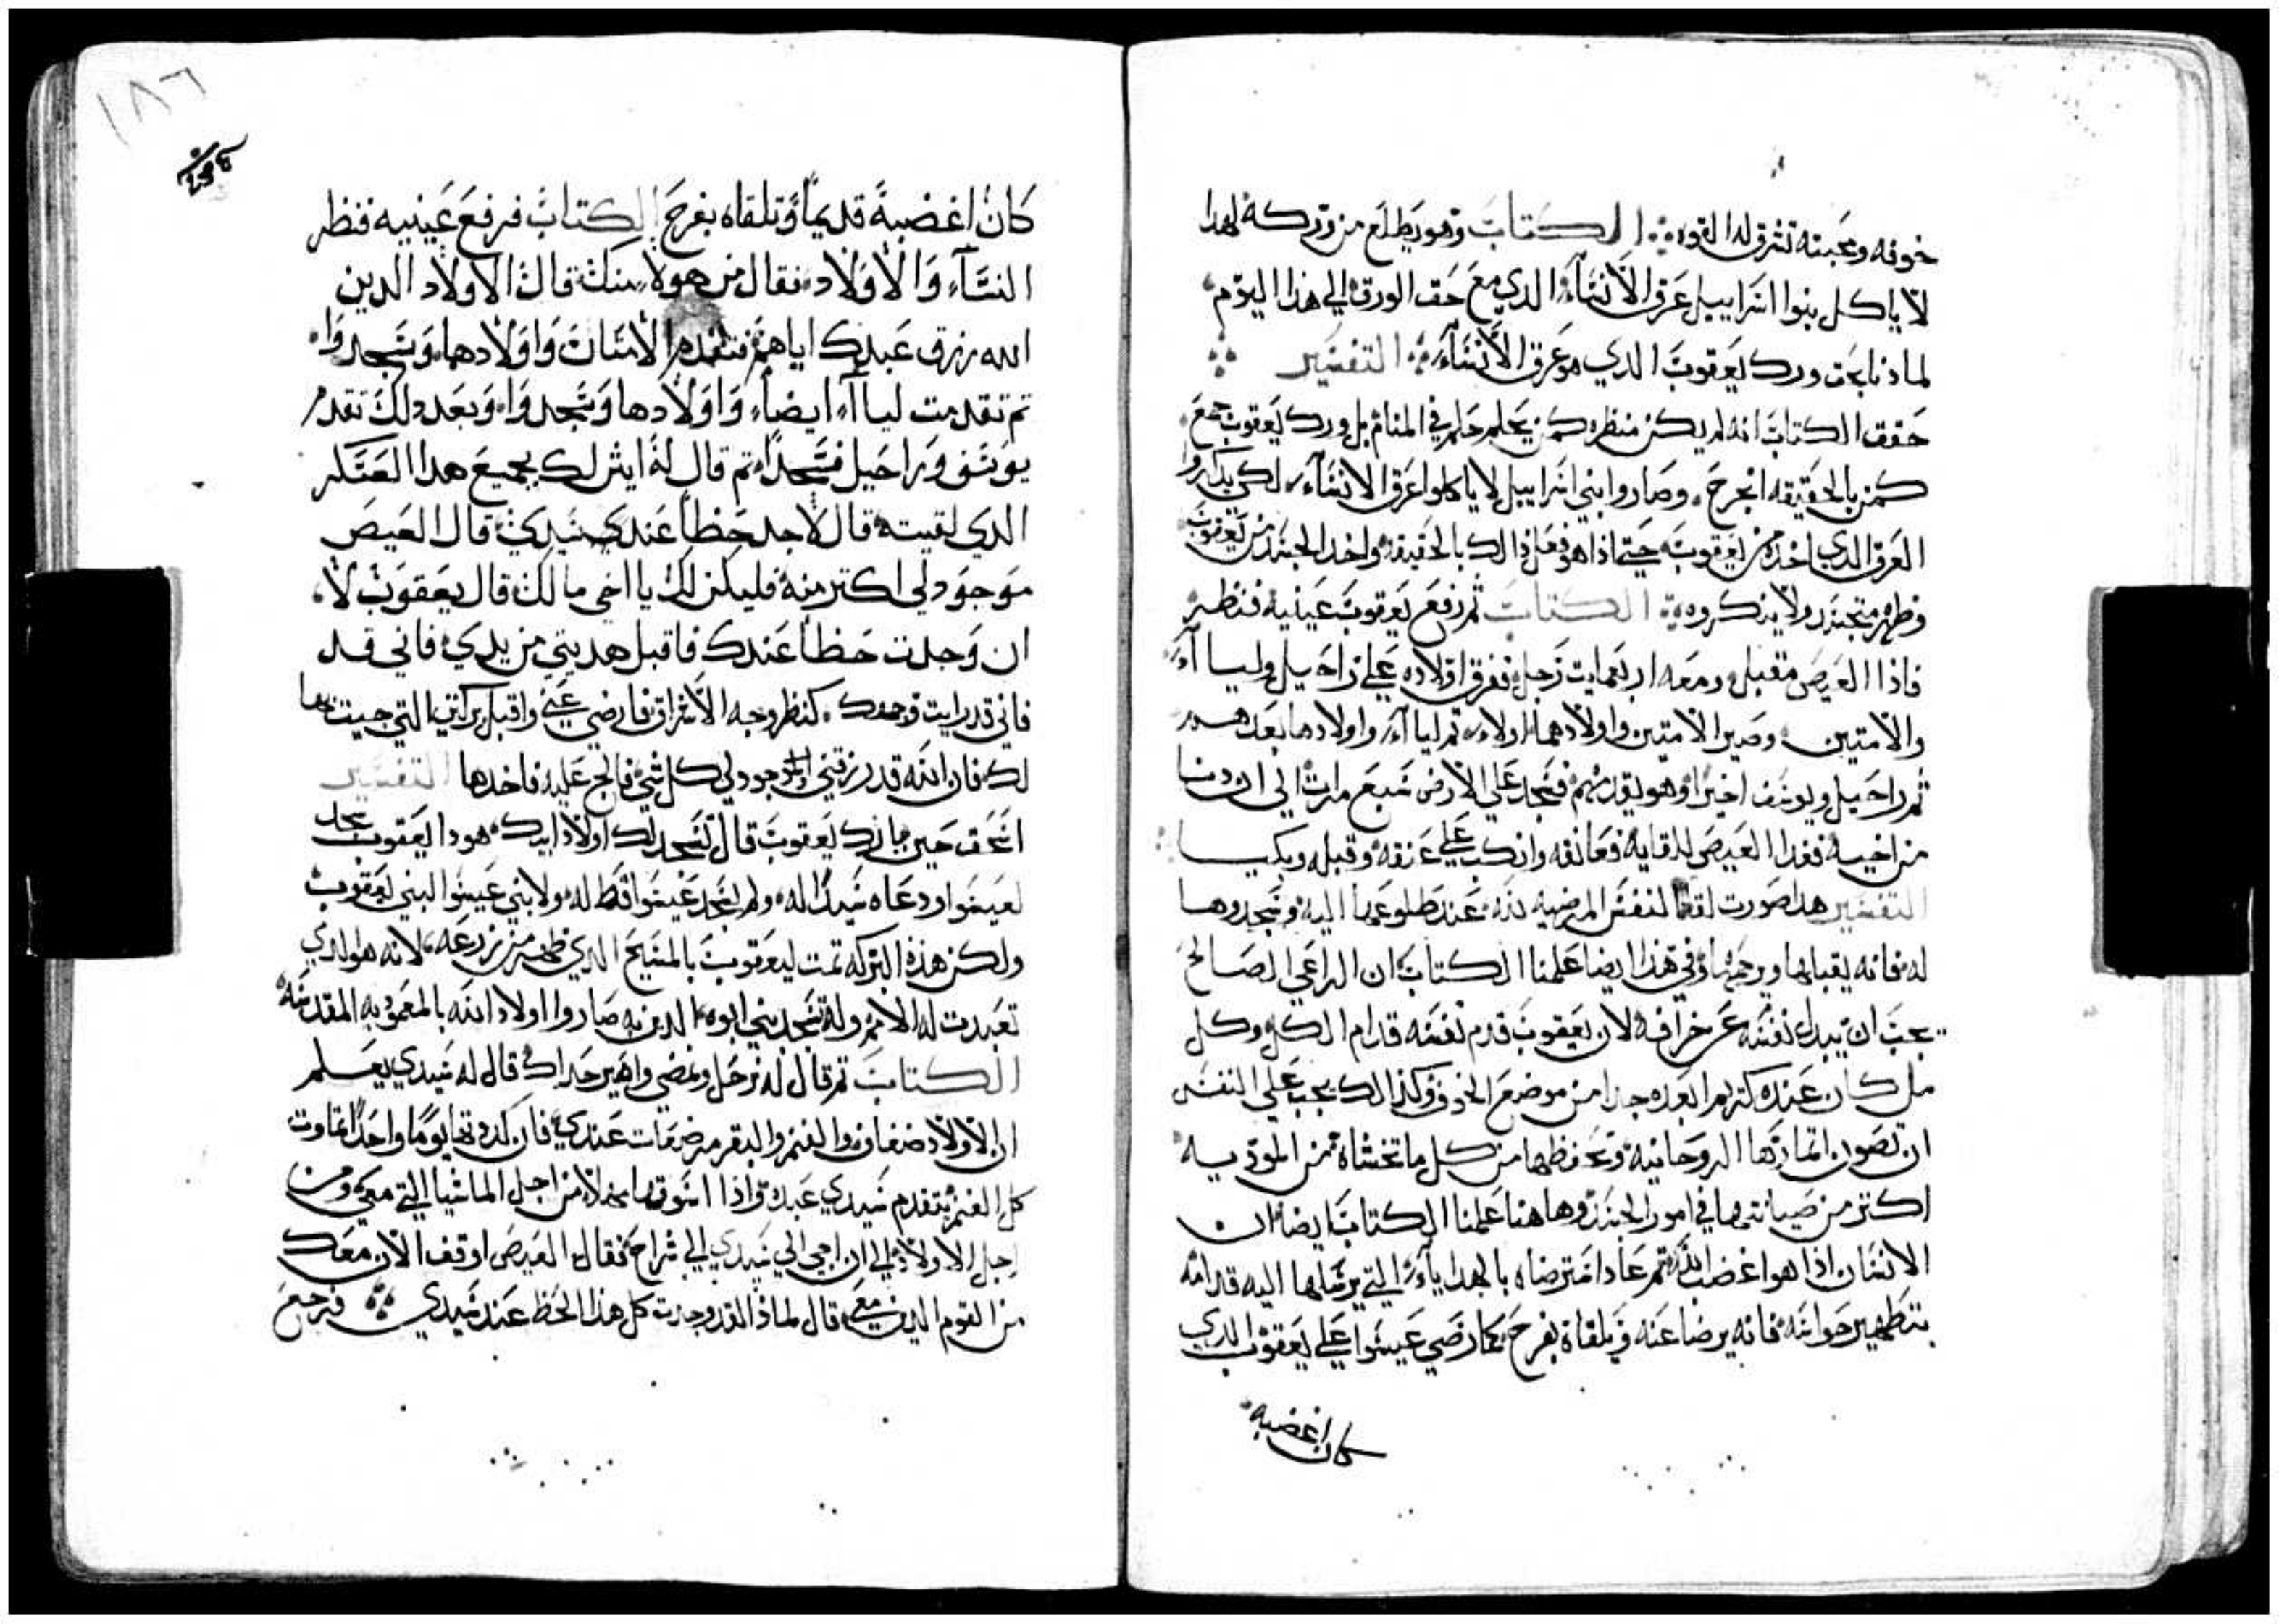 خوفه ومحبته تشرق له القوه ⁘ الكتاب وهو يطلع من وركه لهدا
لا ياكل بنوا اسراييل عرق الانساء الدي مع حق الورق الي هذا اليوم
لما دنا بحق ورك يعقوب الدي هو عرق الانساء ⁘ التفسير ⁘
حقق الكتاب انه لم يكن منظره كمن يحلم حلم في المنام بل ورك يعقوب جمع
كمن بالحقيقه انجرح وصاروا بني اسراييل لا ياكلوا عرق الانساء لكي يذكروا
العرق الدي اخده من يعقوب حتي اذا هو فعل ذالك بالحقيقه واخد الجسد من يعقوب
وظهر متجسد ولا ينكروه ⁘ الكتاب ثم رفع يعقوب عينيه فنظر
فاذا العيص مقبل ومعه اربعمايت رجل ففرق اولاده علي راحيل وليا اء
والامتين وصير الامتين واولادهما اولا ثم ليا اء واولادها بعدهم
ثم راحيل ويوسف اخيرا وهو يقدمهم فسجد علي الارض سبع مرات الي ان دنا
من اخيه فغدا العيص للقايه فعانقه وانكب علي عنقه وقبله وبكيا
التفسير هدا صورت لقا النفس المرضيه لله عند طلوعها اليه وسجدوها
له فانه يقبلها ويرحمها وفي هذا ايضا علمنا الكتاب ان الراعي الصالح
يجب ان يبدل نفسه عن خرافه لان يعقوب قدم نفسه قدام الكل وكل
من كان عنده كريم ابعده جدا من موضع الخوف وكذالك يجب علي النفس
ان تصون اثمارها الروحانيه وتحفظها من كل ما تخشاه من الموديه
اكتر من صيانتها في امور الجسد وهاهنا علمنا الكتاب ايضا ان
الانسان اذا هو اغضب الله ثم عاد استرضاه بالهدايا اء التي يرسلها اليه قدامه
بتطهير حواسه فانه يرضا عنه ويلقاه بفرح كما رضي عيسوا علي يعقوب الدي
كان اغضبه
١٨٦
كان اغضبه قديما وتلقاه بفرح الكتاب فرفع عينيه فنظر
النساء والاولاد فقال من هولا منك قال الاولاد الدين
الله رزق عبدك اياهم فتقدم الامتان واولادها وسجدوا
تم تقدمت ليا اء ايضا واولادها وسجدوا وبعد دلك تقدم
يوسف وراحيل فسجدا تم قال له ايش لك بجميع هدا العسكر
الدي لقيته قال لاجد حظا عندك سيدي قال العيص
موجود لي اكتر منه فليكن لك يا اخي مالك قال يعقوب لا
ان وجدت حظا عندك فاقبل هديتي من يدي فاني قد
فاني قد رايت وجهك كنظر وجه الاشراق فارضي عني واقبل بركتي التي جيت بها
لك فان الله قد رزقني وموجود لي كل شي فالج عليه فاخدها التفسير
اسحق حين بارك يعقوب قال تسجد لك اولاد ابيك هودا يعقوب سجد
لعيسوا ودعاه سيدا له ولم يسجد عيسوا قط له ولا بني عيسوا لبني يعقوب
ولكن هذه البركه تمت ليعقوب بالمسيح الدي ظهر من زرعه لانه هو الدي
تعبدت له الامم وله تسجد بني ابوه الدين به صاروا اولاد الله بالمعموديه المقدسه
الكتاب تم قال له نرحل ونمضي واسير حداك قال له سيدي يعلم
ان الاولاد ضعاف والغنم والبقر مرضعات عندي فان كددتها يوما واحدا تماوت
كل الغنم يتقدم سيدي عبده واذا اسوقها مهلا من اجل الماشيا التي معي ومن
اجل الاولاد الي ان اجي الي سيدي الي شراح فقال العيص اوقف الان معك
من القوم الدين معي قال لماذا لقد وجدت كل هذا الحظ عند سيدي ⁘ فرجع